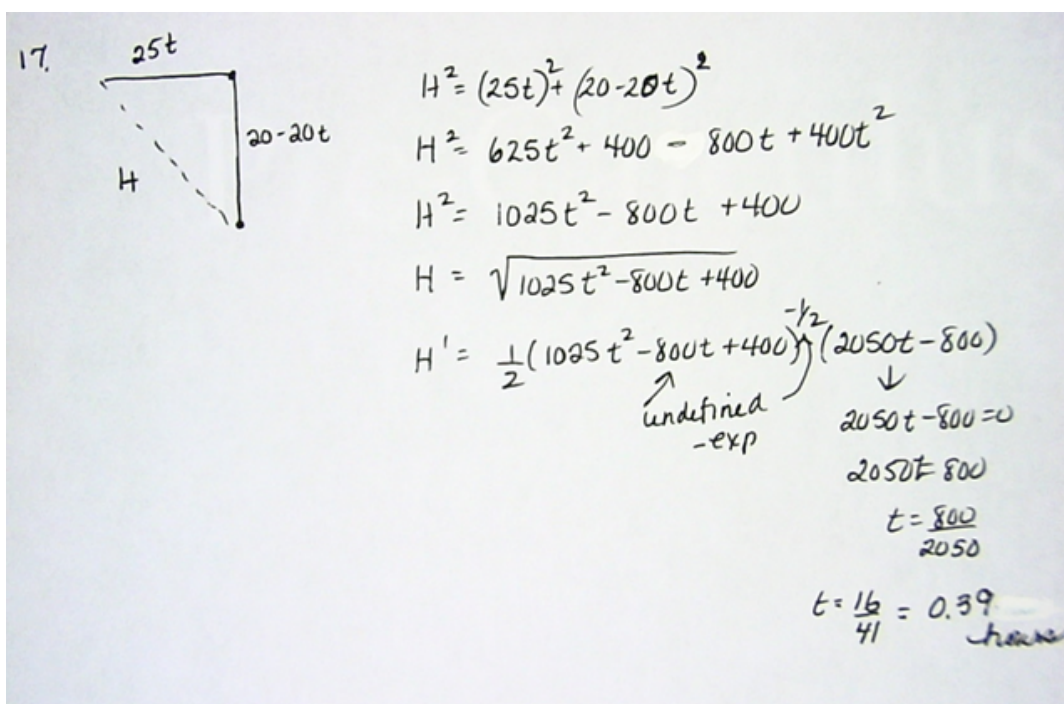 17.
25t
20-20t
H
H² = (25t)² + (20-20t)²
H² = 625t² + 400 - 800t + 400t²
H² = 1025t² - 800t + 400
H = √1025t² - 800t + 400
H' = 1/2 (1025t² - 800t + 400)^-1/2 (2050t - 800)
undefined
-exp
↓
2050t - 800 = 0
2050t = 800
t = 800/2050
t = 16/41 = 0.39
hours